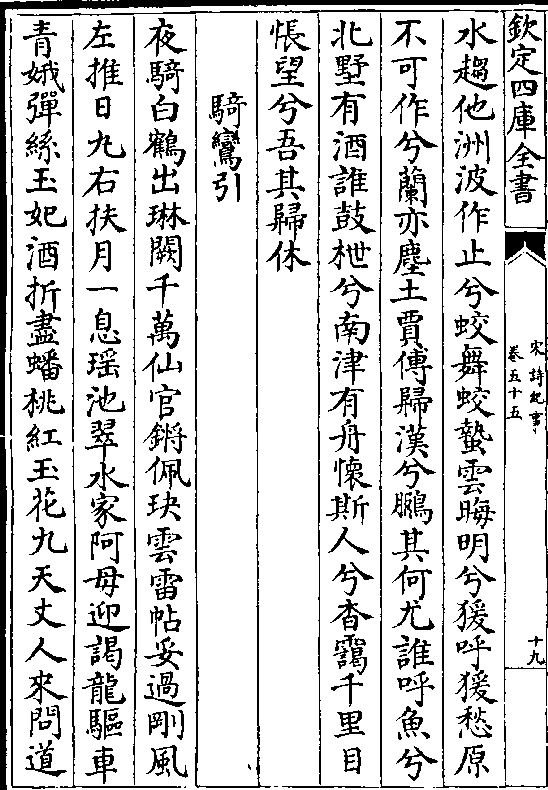 欽定四庫全書
宋詩紀事
卷五十五
十九
水趨他洲波作止兮蛟舞蛟蟄雲晦明兮猨呼猨愁原
不可作兮蘭亦塵土賈傅歸漢兮鵩其何尤誰呼魚兮
北墅有酒誰鼓枻兮南津有舟懷斯人兮杳靄千里目
悵望兮吾其歸休
騎鸞引
夜騎白鶴出琳闕千萬仙官鏘佩玦雲雷帖妥過剛風
左推日九右扶月一息瑶池翠水家阿母迎謁龍驅車
青娥彈絲玉妃酒折盡蟠桃紅玉花九天丈人來問道